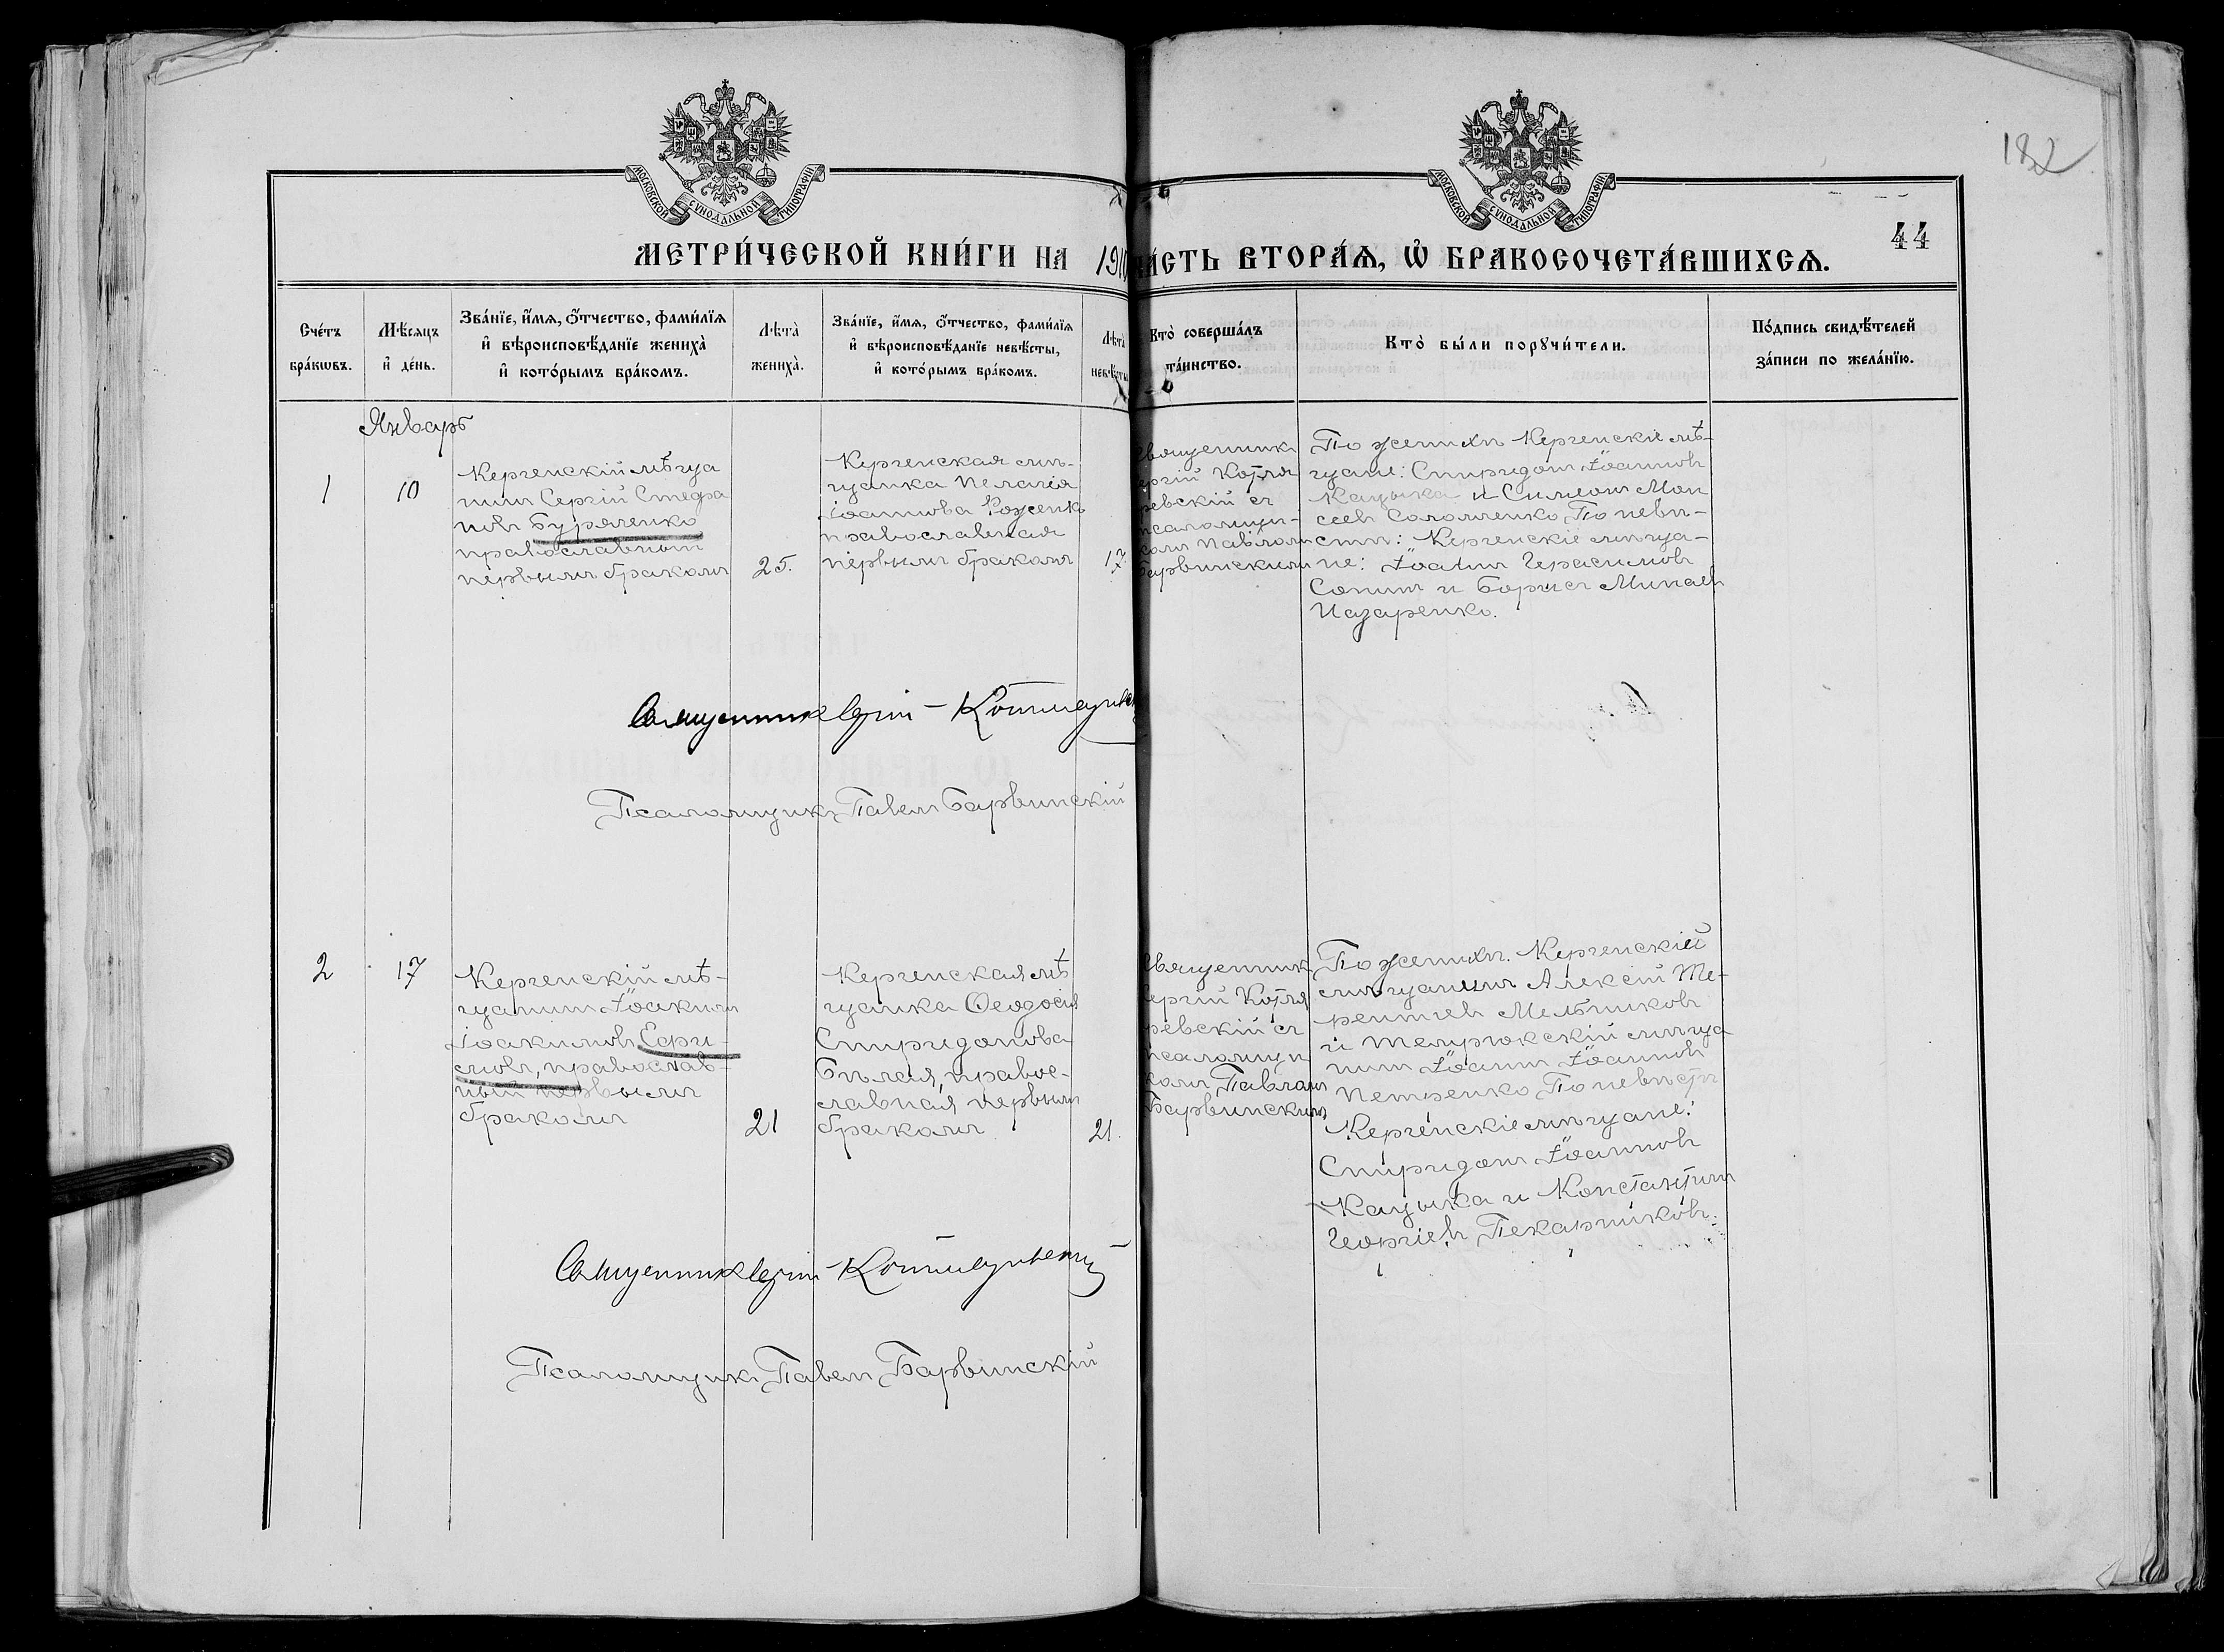 182
МОСКОВСКОЙ СУНОДАЛЬНОЙ ТИПОГРАФІИ
МОСКОВСКОЙ СУНОДАЛЬНОЙ ТИПОГРАФІИ
МЕТРИ́ЧЕСКОЙ КНИ́ГИ НА 1910
ЧА́СТЬ ВТОРА́Ѧ, Ѽ БРАКОСОЧЕТА́ВШИХСѦ.
44
Сче́тъ
бра́кѡвъ.
Мѣ́сяцъ
и҆ де́нь.
Зва́нїе, и҆́мѧ, ѻ҆́тчество, фами́лїѧ
и҆ вѣроисповѣ́данїе жениха̀
и҆ кото́рымъ бра́комъ.
Лѣта̀
жениха̀.
Зва́нїе, и҆́мѧ, ѻ҆́тчество, фами́лїѧ
и҆ вѣроисповѣ́данїе невѣ́сты,
и҆ кото́рымъ бра́комъ.
Лѣта̀
невѣ́сты
Кто̀ соверша́лъ
та́инство.
Кто̀ бы́ли порꙋчи́тели.
По́дпись свидѣ́телей
за́писи по жела́нїю.
Январь
1
10
Керченскій мѣща
нинъ Сергій Стефа
новъ Буряченко
православный
первымъ бракомъ
25.
Керченская мѣ-
щанка Пелагія
Іоаннова Роженко
православная
первымъ бракомъ
17.
Священникъ
Сергій Котля
ревскій съ
псаломщи-
комъ Павломъ
Барвинскимъ
По женихѣ Керченскіе мѣ-
щане: Спиридонъ Іоанновъ
Кацыка и Симеонъ Мои
сеевъ Соломченко, По невѣ-
стѣ: Керченскіе мѣща-
не: Іоаннъ Герасимовъ
Сопинъ и Борисъ Минаевъ
Назаренко.
Священникъ Сергій Котляревскій
Псаломщикъ Павелъ Барвинскій
2
17
Керченскій мѣ-
щанинъ Іоакимъ
Іоакимовъ Ефи-
мовъ, православ-
ный первымъ
бракомъ
21
Керченская мѣ
щанка Ѳеодосія
Спиридонова
Бѣлая, правос-
лавная первымъ
бракомъ
21.
Священникъ
Сергій Котля
ревскій съ
псаломщи
комъ Павломъ
Барвинскимъ
По женихѣ. Керченскій
мѣщанинъ Алексій Те-
рентіевъ Мельниковъ
и Темрюкскій мѣща
нинъ Іоаннъ Іоанновъ
Петренко, По невѣстѣ
Керченскіе мѣщане:
Спиридонъ Іоанновъ
Кацыка и Константинъ
Георгіевъ Пекарниковъ.
Священникъ Сергій Котляревскій
Псаломщикъ Павелъ Барвинскій